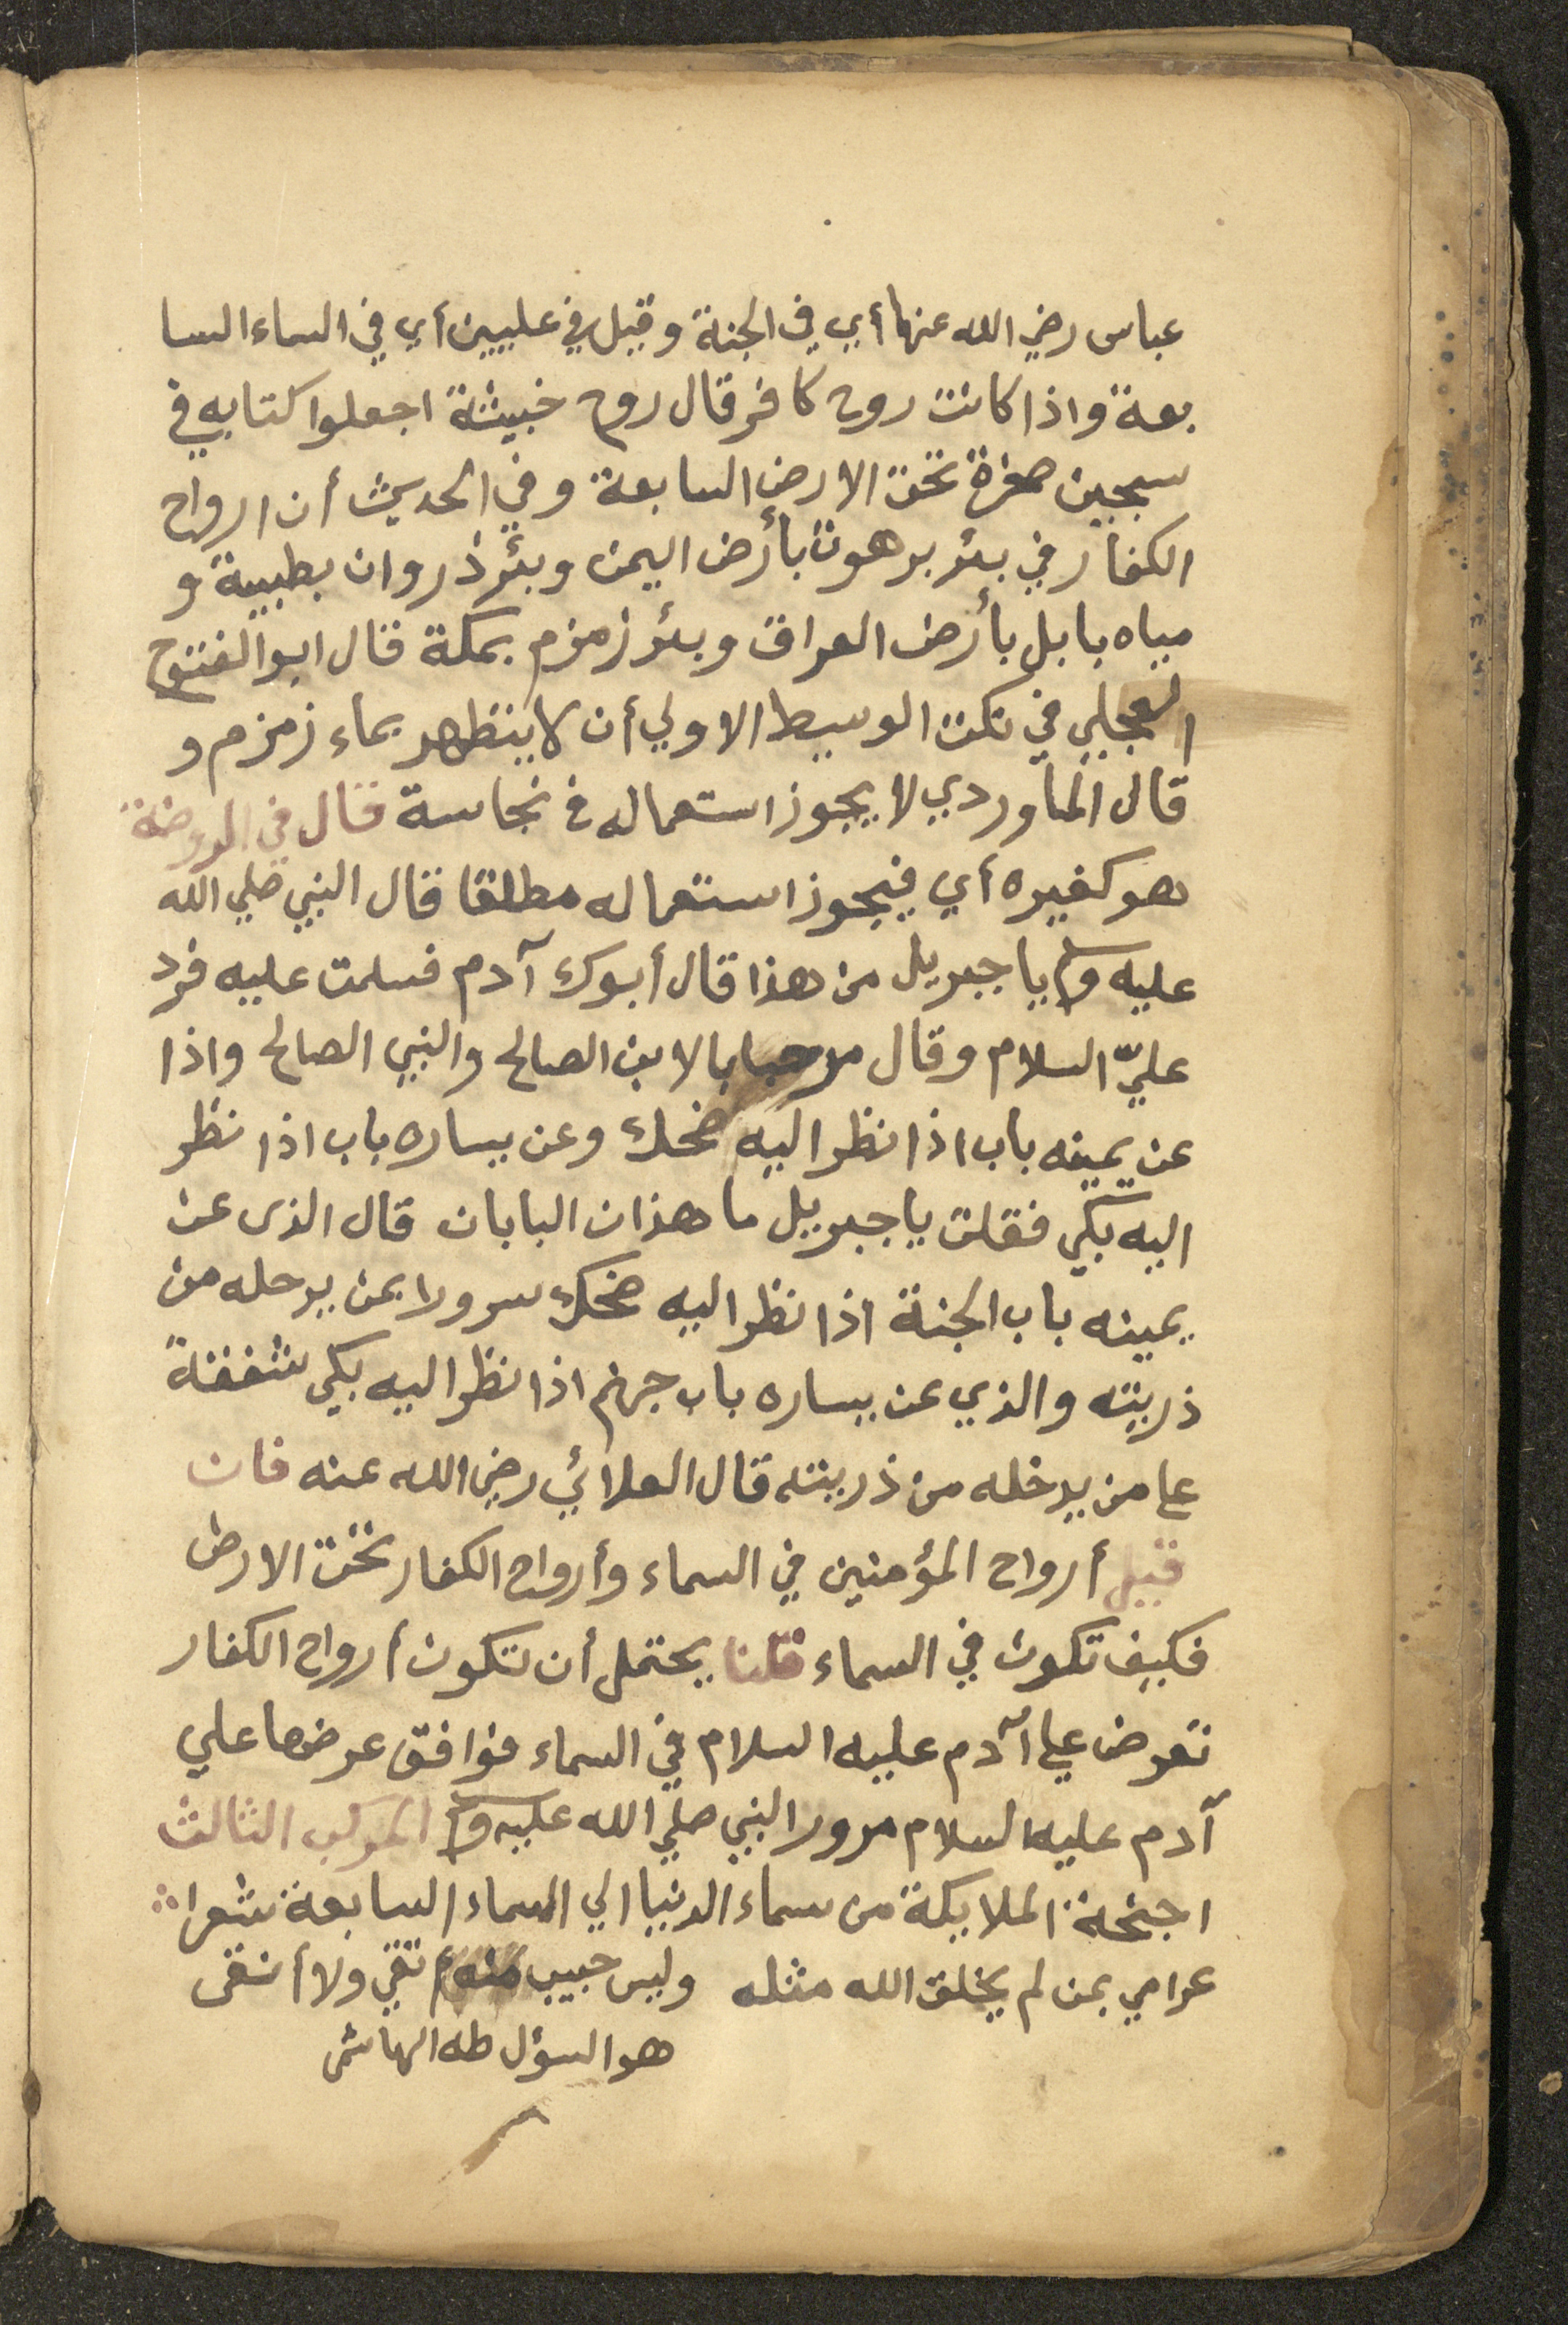 عباس رضي الله عنهما أي في الجنة وقيل في عليين أي في السماء السا
بعة واذا كانت روح كافر قال روح خبيثة اجعلوا كتابه في
سجين صخرة تحت الارض السابعة وفي الحديث أن ارواح
الكفار في بئر برهوت بأرض اليمن وبئر ذروان بطيبة و
مياه بابل بأرض العراق وبئر زمزم بمكة قال ابو الفتوح
العجلي في نكت الوسيط الاولي أن لا يتطهر بماء زمزم و
قال الماوردي لا يجوز استعماله في نجاسة قال في الروضة
هو كغيره أي فيجوز استعماله مطلقا قال النبي صلي الله
عليه وسلم يا جبريل من هذا قال أبوك آدم فسلمت عليه فرد
عليّ السلام وقال مرحبا بالابن الصالح والنبي الصالح واذا
عن يمينه باب اذا نظر اليه ضحك وعن يساره باب اذا نظر
اليه بكي فقلت يا جبريل ما هذان البابان قال الذى عن
يمينه باب الجنة اذا نظر اليه ضحك سرورا بمن يدخله من
ذريته والذي عن يساره باب جهنم اذا نظر اليه بكي شفقة
على من يدخله من ذريته قال العلائي رضي الله عنه فان
قيل أرواح المؤمنين في السماء وأرواح الكفار تحت الارض
فكيف تكون في السماء قلنا يحتمل أن تكون أرواح الكفار
تعرض علي آدم عليه السلام في السماء فوافق عرضها علي
آدم عليه السلام مرور النبي صلي الله عليه وسلم المركب الثالث
اجنحة الملايكة من سماء الدنيا الي السماء السابعة شعرا
غرامي بمن لم يخلق الله مثله وليس حبيب منه أتقي ولا أنقى
هو السؤل طه الهاشمى